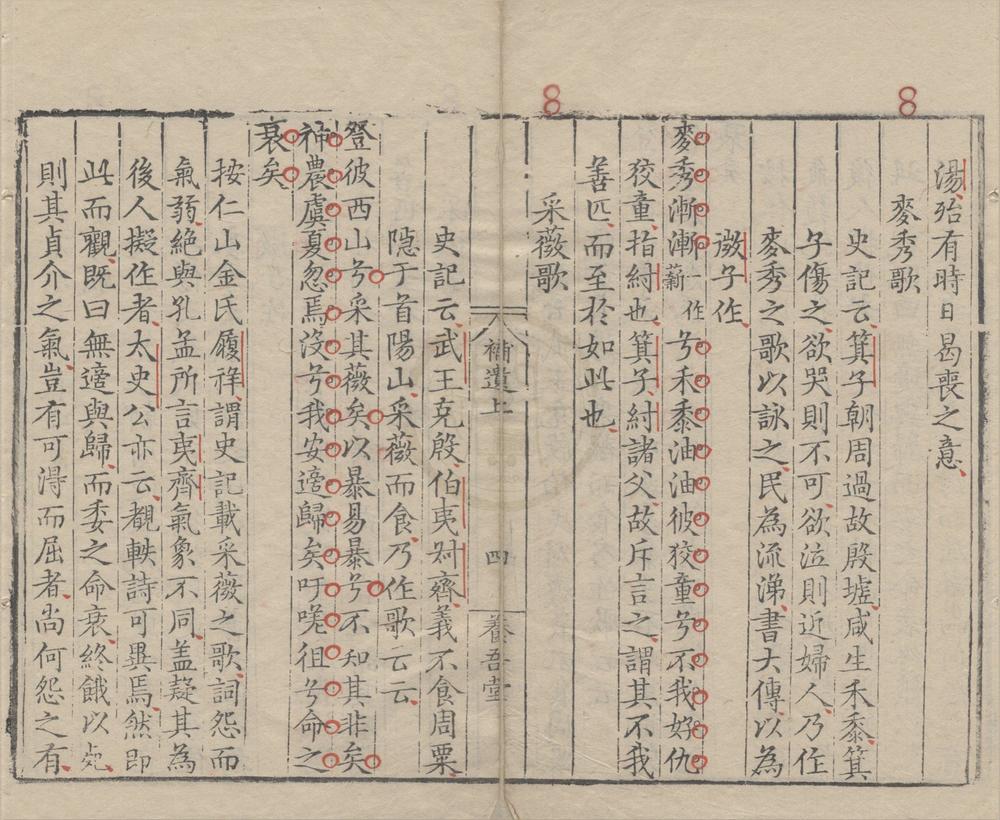 湯殆有時日曷喪之意
麥秀歌
史記云箕子朝周過故殷墟咸生禾黍箕
子傷之欲哭則不可欲泣則近婦人乃作
麥秀之歌以詠之民為流涕書大傳以為
微子作
麥秀漸漸一作蔪兮禾黍油油彼狡童兮不我好仇
狡童指紂也箕子紂諸父故斥言之謂其不我
善匹而至於如此也
采薇歌
補遺上 四 養吾堂
史記云武王克殷伯夷叔齊義不食周粟
隱于首陽山采薇而食乃作歌云云
登彼西山兮采其薇矣以暴易暴兮不知其非矣
神農虞夏忽焉沒兮我安適歸矣吁嗟徂兮命之
衰矣
按仁山金氏履祥謂史記載采薇之歌詞怨而
氣弱絕與孔孟所言夷齊氣象不同盖疑其為
後人擬作者太史公亦云覩軼詩可異焉然即
此而觀既曰無適與歸而委之命衰終餓以死
則其貞介之氣豈有可得而屈者尚何怨之有
8
8